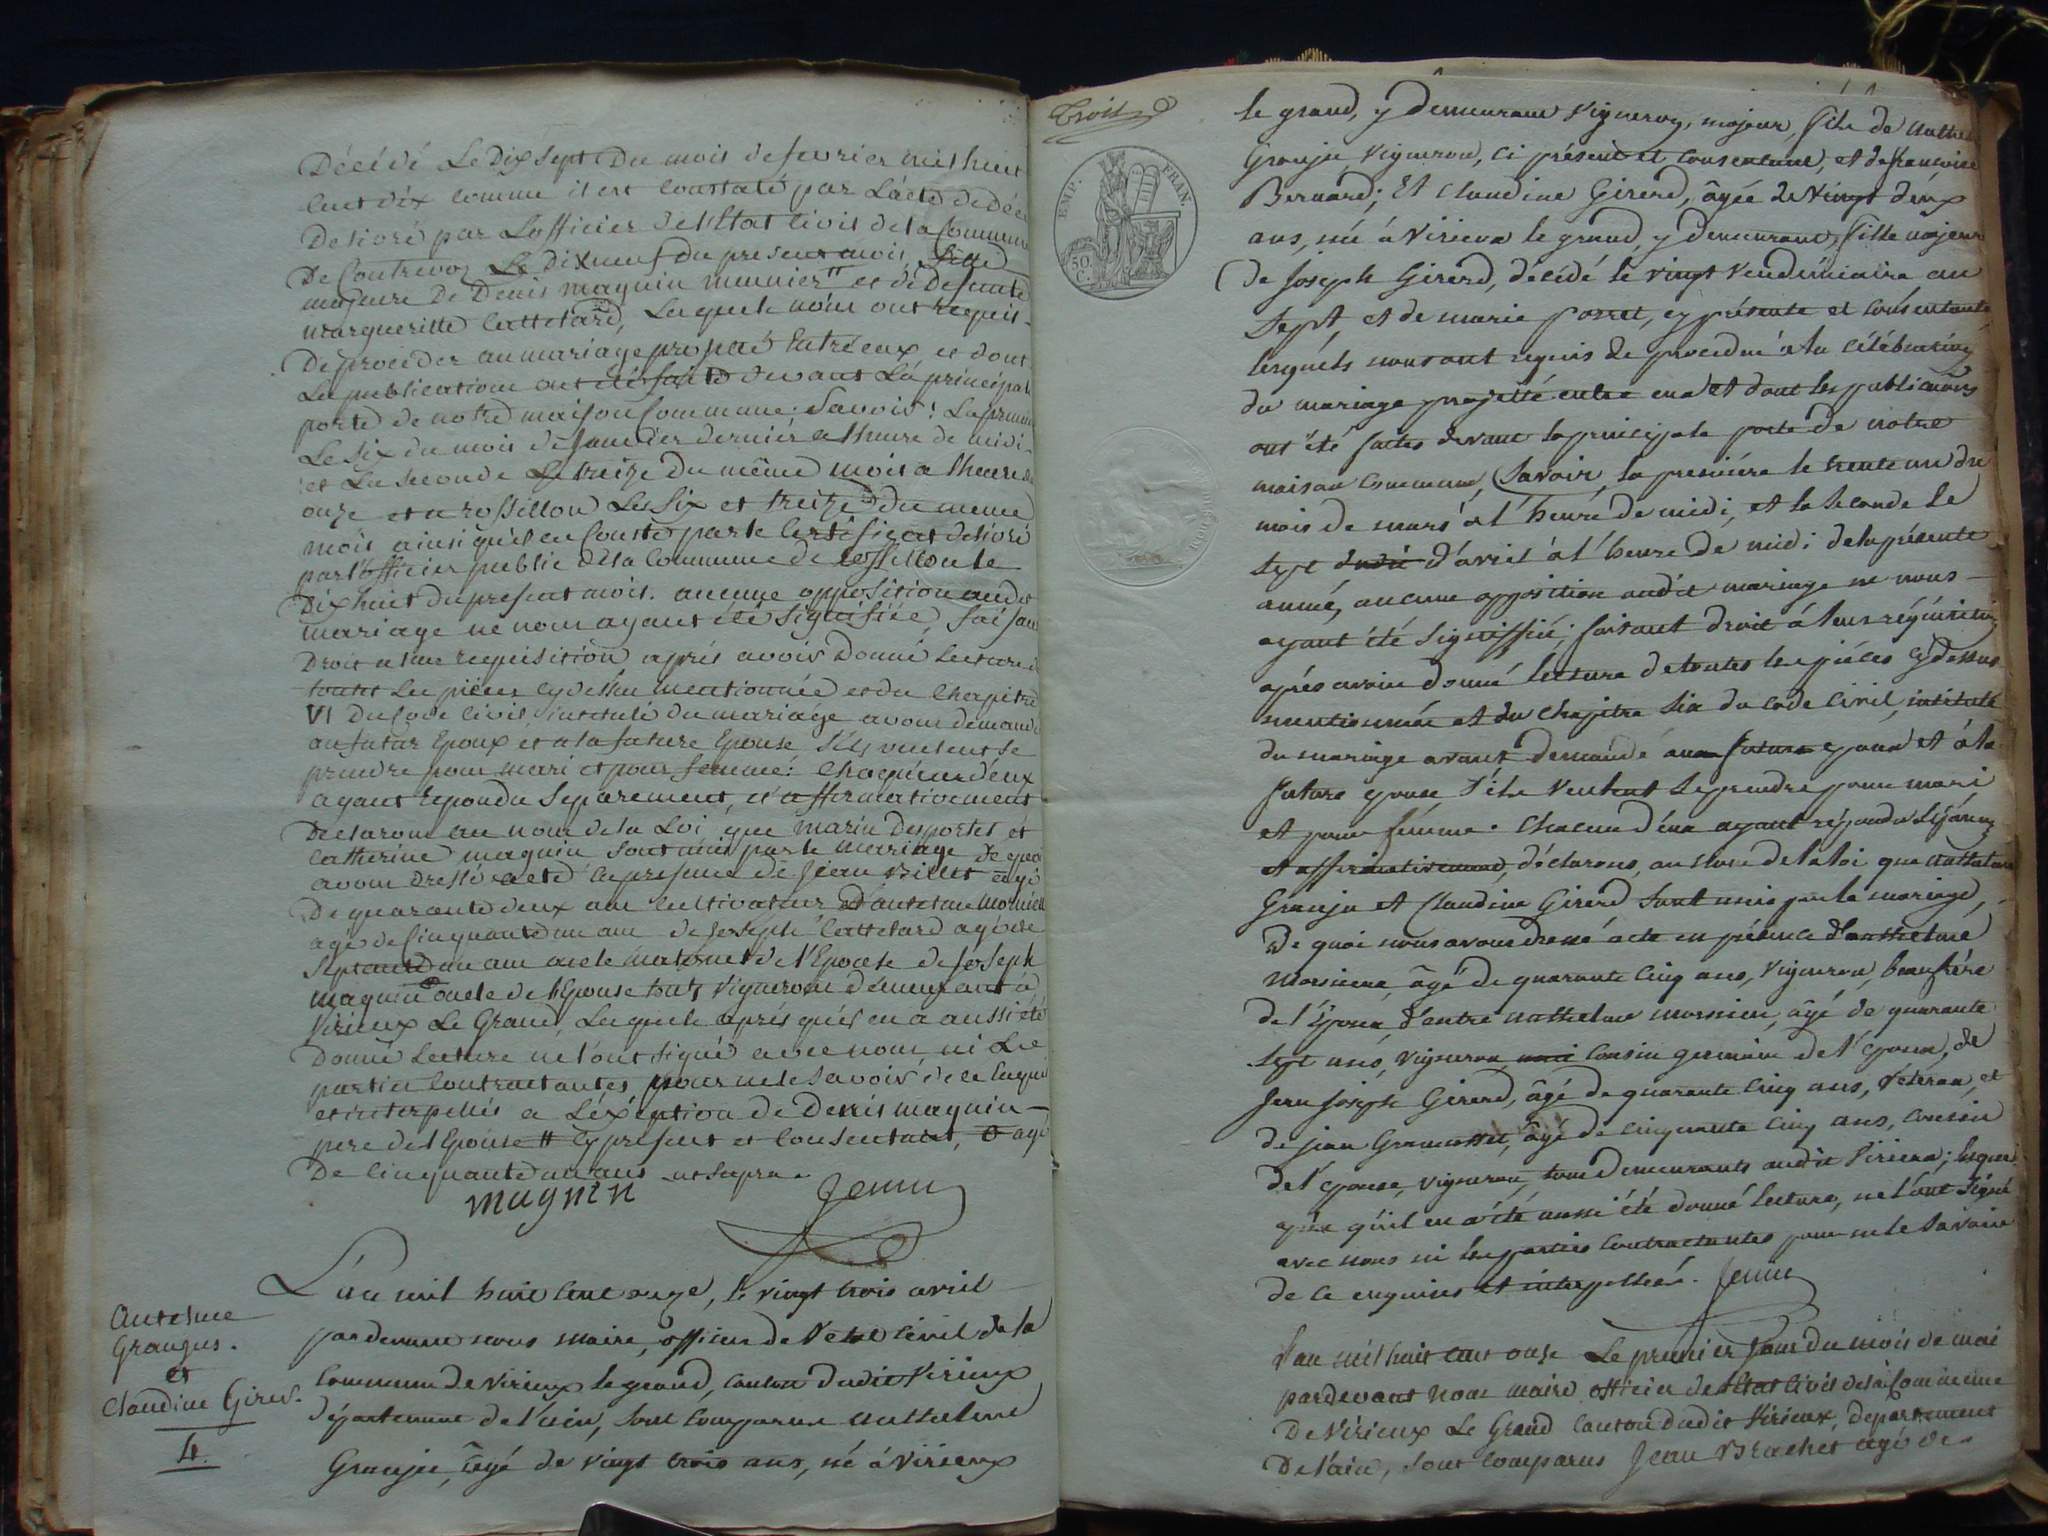 Décédé Le Dix sept Du mois de fevrier mil huit
Cent dix comme il est Constaté par L'acte de décé
Delivré par Lofficier de lEtat Civil de la Commune
De Contrevoz Le Dix neuf du present mois, fille
majeure De Denis magnin munier # et de Defunte
margueritte Cattelard, Lesquels nous ont requis
De proceder au mariage projetté Entr'eux et dont
Les publications ont été faites devant La principale
porte de notre maison Commune: Savoir: La premiere
Le Six du mois de Janvier dernier a lheure de midi
et La seconde Le treize Du même mois a lheure de
onze et a rossillon Les Six et treize du meme
mois ainsi quil en Conste par le Certificat delivré
par l'officier public de la Commune de Rossillon le
Dix huit du present mois. aucune opposition audit
mariage ne nous ayant été signifiée, faisant
Droit a leur requisition après avoir Donné Lecture de
toutes Les pieces cy dessus mentionnée et du Chapitre
VI Du Code Civil, intitulé du mariage avons demandé
au futur Epoux et a la future Epouse s'ils veulent se
prendre pour mari et pour femme: Chaqu'un d'eux
ayant repondu Separement, et affirmativement
Declarons au nom de la Loi, que marin Desportes et
Catherine magnin sont unis par le mariage de quoi
avons Dressé acte En presence de Jean Billet agé
De quarante deux ans Cultivateur D'antelme Mornieu
agé de Cinquante un ans de Joseph Cattelard agé de
Septante un ans oncle maternel de l'Epouse de Joseph
magnin oncle de l'Epouse touts Vignerons demeurant à
Virieux Le Grand, Lesquels après qu'il en a aussi été
Donné Lecture ne l'ont signé avec nous, ni Les
parties Contractantes pour ne le Savoir de ce Enquis
et interpellés a L'éxéption de Denis magnin
pere de l'Epouse # Cy present et Consentant, agé
De Cinquante un ans ut supra.
magnin Jenin
Antelme
Grangus.
et
Claudine Girer.
4.
L'an mil huit cent onze, le vingt trois avril
par devant nous maire, officier de l'état civil de la
commune de Virieux le grand, canton dudit Virieux
département de l'ain, sont comparus Anthelme
Granjus, âgé de vingt trois ans, né à Virieux
Trois
EMP. FRAN.
50
C.
le grand, y demeurant Vigneron, majeur, fils de Anthelme
Granjus Vigneron, ci présent et consentant, et de francoise
Bernard; Et Claudine Girerd, âgée de Vingt deux
ans, née à Virieux le grand, y demeurant, fille majeure
de Joseph Girerd, décédé le vingt Vendémiaire an
Sept, et de marie porret, cy présente et consentante
lesquels nous ont requis de procéder à la célébration
du mariage projetté entre eux et dont les publications
ont été faites devant la principale porte de notre
maison commune, Savoir, la première le trente un du
mois de mars à l'heure de midi, et la seconde le
sept d'avril à l'heure de midi de la présente
année, aucune opposition audit mariage ne nous
ayant été signiffiée; faisant droit à leur réquisition
après avoir donné lecture de toutes les pièces cy dessus
mentionnées et du chapitre six du code civil, intitulé
du mariage avons demandé au futur epoux et à la
future epouse s'ils veulent se prendre pour mari
et pour femme. Chacun d'eux ayant répondu séparement
et affirmativement, déclarons, au nom de la loi que Anthelme
Granjus et Claudine Girerd sont unis par le mariage,
De quoi nous avons dressé acte en présence d'anthelme
Mornieu, âgé de quarante cinq ans, Vigneron, beaufrère
de l'époux, d'autre anthelme mornieu, âgé de quarante
sept ans, Vigneron, cousin germain de l'epoux, de
Jean Joseph Girerd, âgé de quarante cinq ans, Vétéran, et
de jean Gramosset, âgé de cinquante cinq ans, cousin
de l'epouse, vigneron, tous demeurants audit Virieux; lesquels
après qu'il en a été aussi été donné lecture, ne l'ont signé
avec nous ni les parties contractantes pour ne le savoir
de ce enquises et interpellées. Jenin
L'an mil huit cent onze Le premier Jour du mois de mai
pardevant nous maire officier de l'Etat Civil de la Commune
De Virieux Le Grand Canton dudit Virieux, departement
De l'ain, sont comparus Jean Brachet agé de